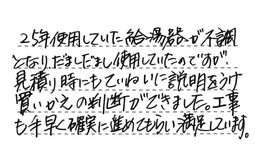 25年使用していた給湯器が不調
となり、だましだまし使用していたのですが、
見積り時にもていねいに説明をうけ
買いかえの判断ができました。工事
も手早く確実に進めてもらい満足しています。